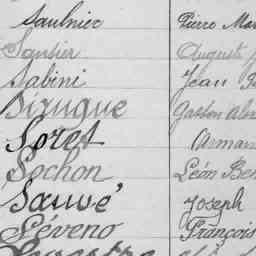 Saulnier Pierre
Saulier Auguste
Sabini Jean
Siruque Gaston
Soret Arman
Sochon Léon Ben
Sauvé Joseph
Séveno François